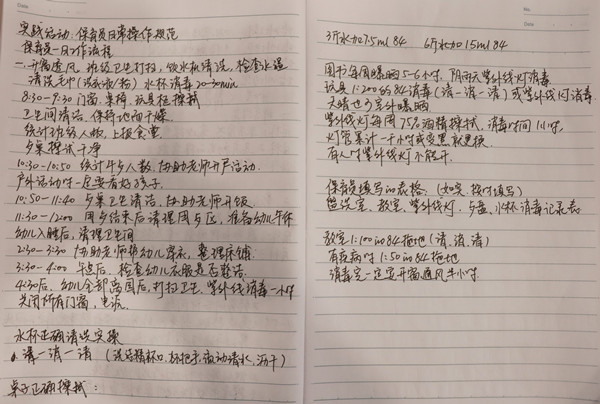 实践活动：保育员日常操作规范
保育员一日工作流程
一、开窗通风，班级卫生打扫，饮水机清洗，检查水温
清洗毛巾(洗衣液/粉) 水杯消毒20-30min
8:30-9:30 门窗，桌椅，玩具柜擦拭
卫生间清洁，保持地面干燥
统计班级人数，上报食堂
餐桌擦拭干净
10:30-10:50 统计午餐人数，协助老师开户活动
户外活动时一定要看好孩子
10:50-11:40 餐桌卫生清洁，协助老师开饭
11:30-1200 用餐结束后清理用餐区，准备幼儿午休
幼儿入睡后，清理卫生间
2:30-3:30 协助老师帮幼儿穿衣，整理床铺
3:30-4:00 午点后，检查幼儿衣服是否整洁
4:30后，幼儿全部离园后，打扫卫生，紫外线消毒一小时
关闭所有门窗，电源
水杯正确清洗实操
清一消一清
桌子正确擦拭：
3斤水加7.5ml 84 6斤水加15ml 84
图书每周曝晒5-6小时，阴雨天紫外线灯消毒
玩具1:200的84消毒(清一消一清)或紫外线灯消毒
天晴也可室外曝晒
紫外线灯每周75%酒精擦拭，消毒时间1小时
灯管累计一千小时或发黑就更换
有人时紫外线灯不能开
保育员填写的表格：(如实 按时填写)
盥洗室，教室，紫外线灯，餐盘，水杯消毒记录表
教室1:100的84拖地(清，消，清)
有疾病时1:50的84拖地
消毒完一定要开窗通风半小时